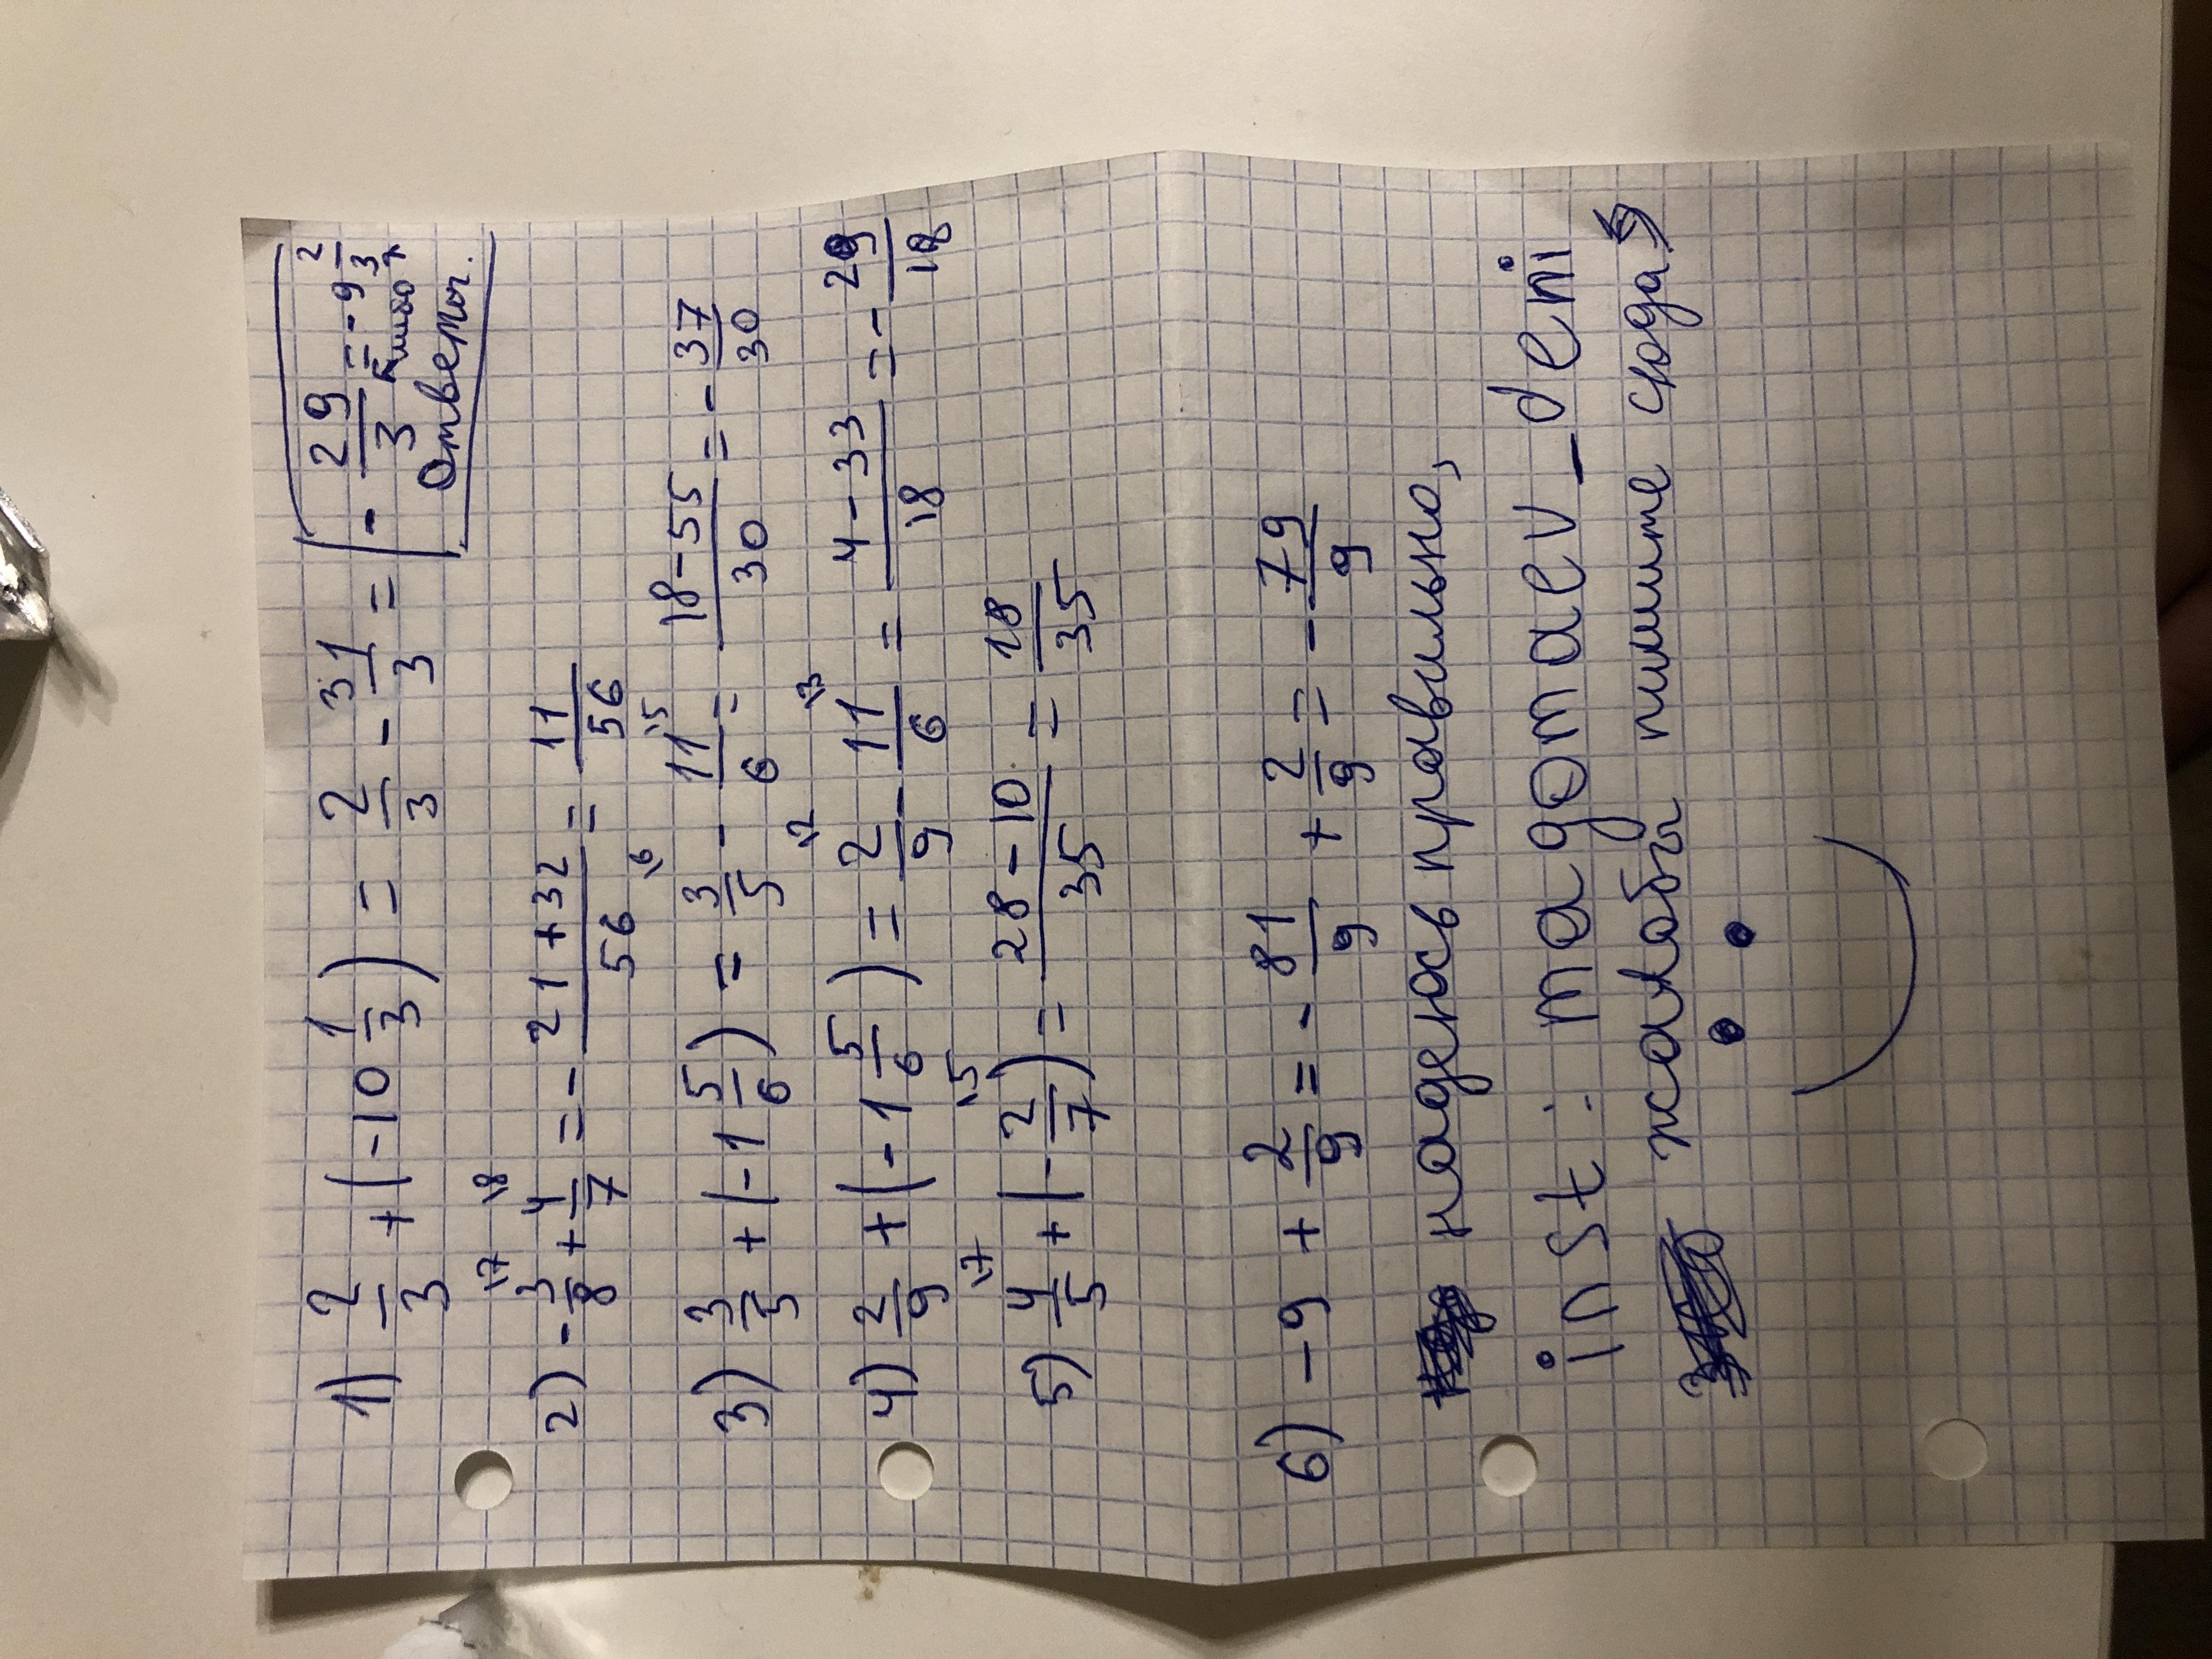 1) 2/3 + (-10 1/3) = 2/3 - 31/3 = - 29/3 = -9 2/3
Ответ
2) -3/8 \7 + 4/7 \8 = - 21+32/56 = 11/56
3) 3/5 + (-1 5/6) = 3/5 \6 - 11/6 \5 = 18-55/30 = - 37/30
4) 2/9 + (-1 5/6) = 2/9 \2 - 11/6 \3 = 4-33/18 = - 29/18
5) 4/5 \7 + (-2/7 \5) = 28-10/35 = 18/35
6) -9 + 2/9 = - 81/9 + 2/9 = - 79/9
надеюсь правильно,
inst: magomaev_deni
жалобы пишите сюда